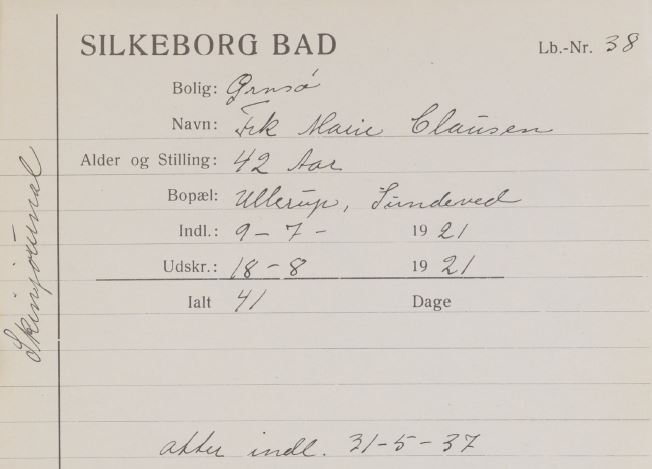 SILKEBORG BAD
Lb.-Nr. 38
Bolig: Ørnsø
Navn: Frk Marie Clausen
Alder og Stilling: 42 Aar
Bopæl: Ullerup, Sundeved
Indl.: 9 - 7 - 1921
Udskr.: 18 - 8 1921
Ialt 41 Dage
atter indl. 31-5-37
Skinjournal